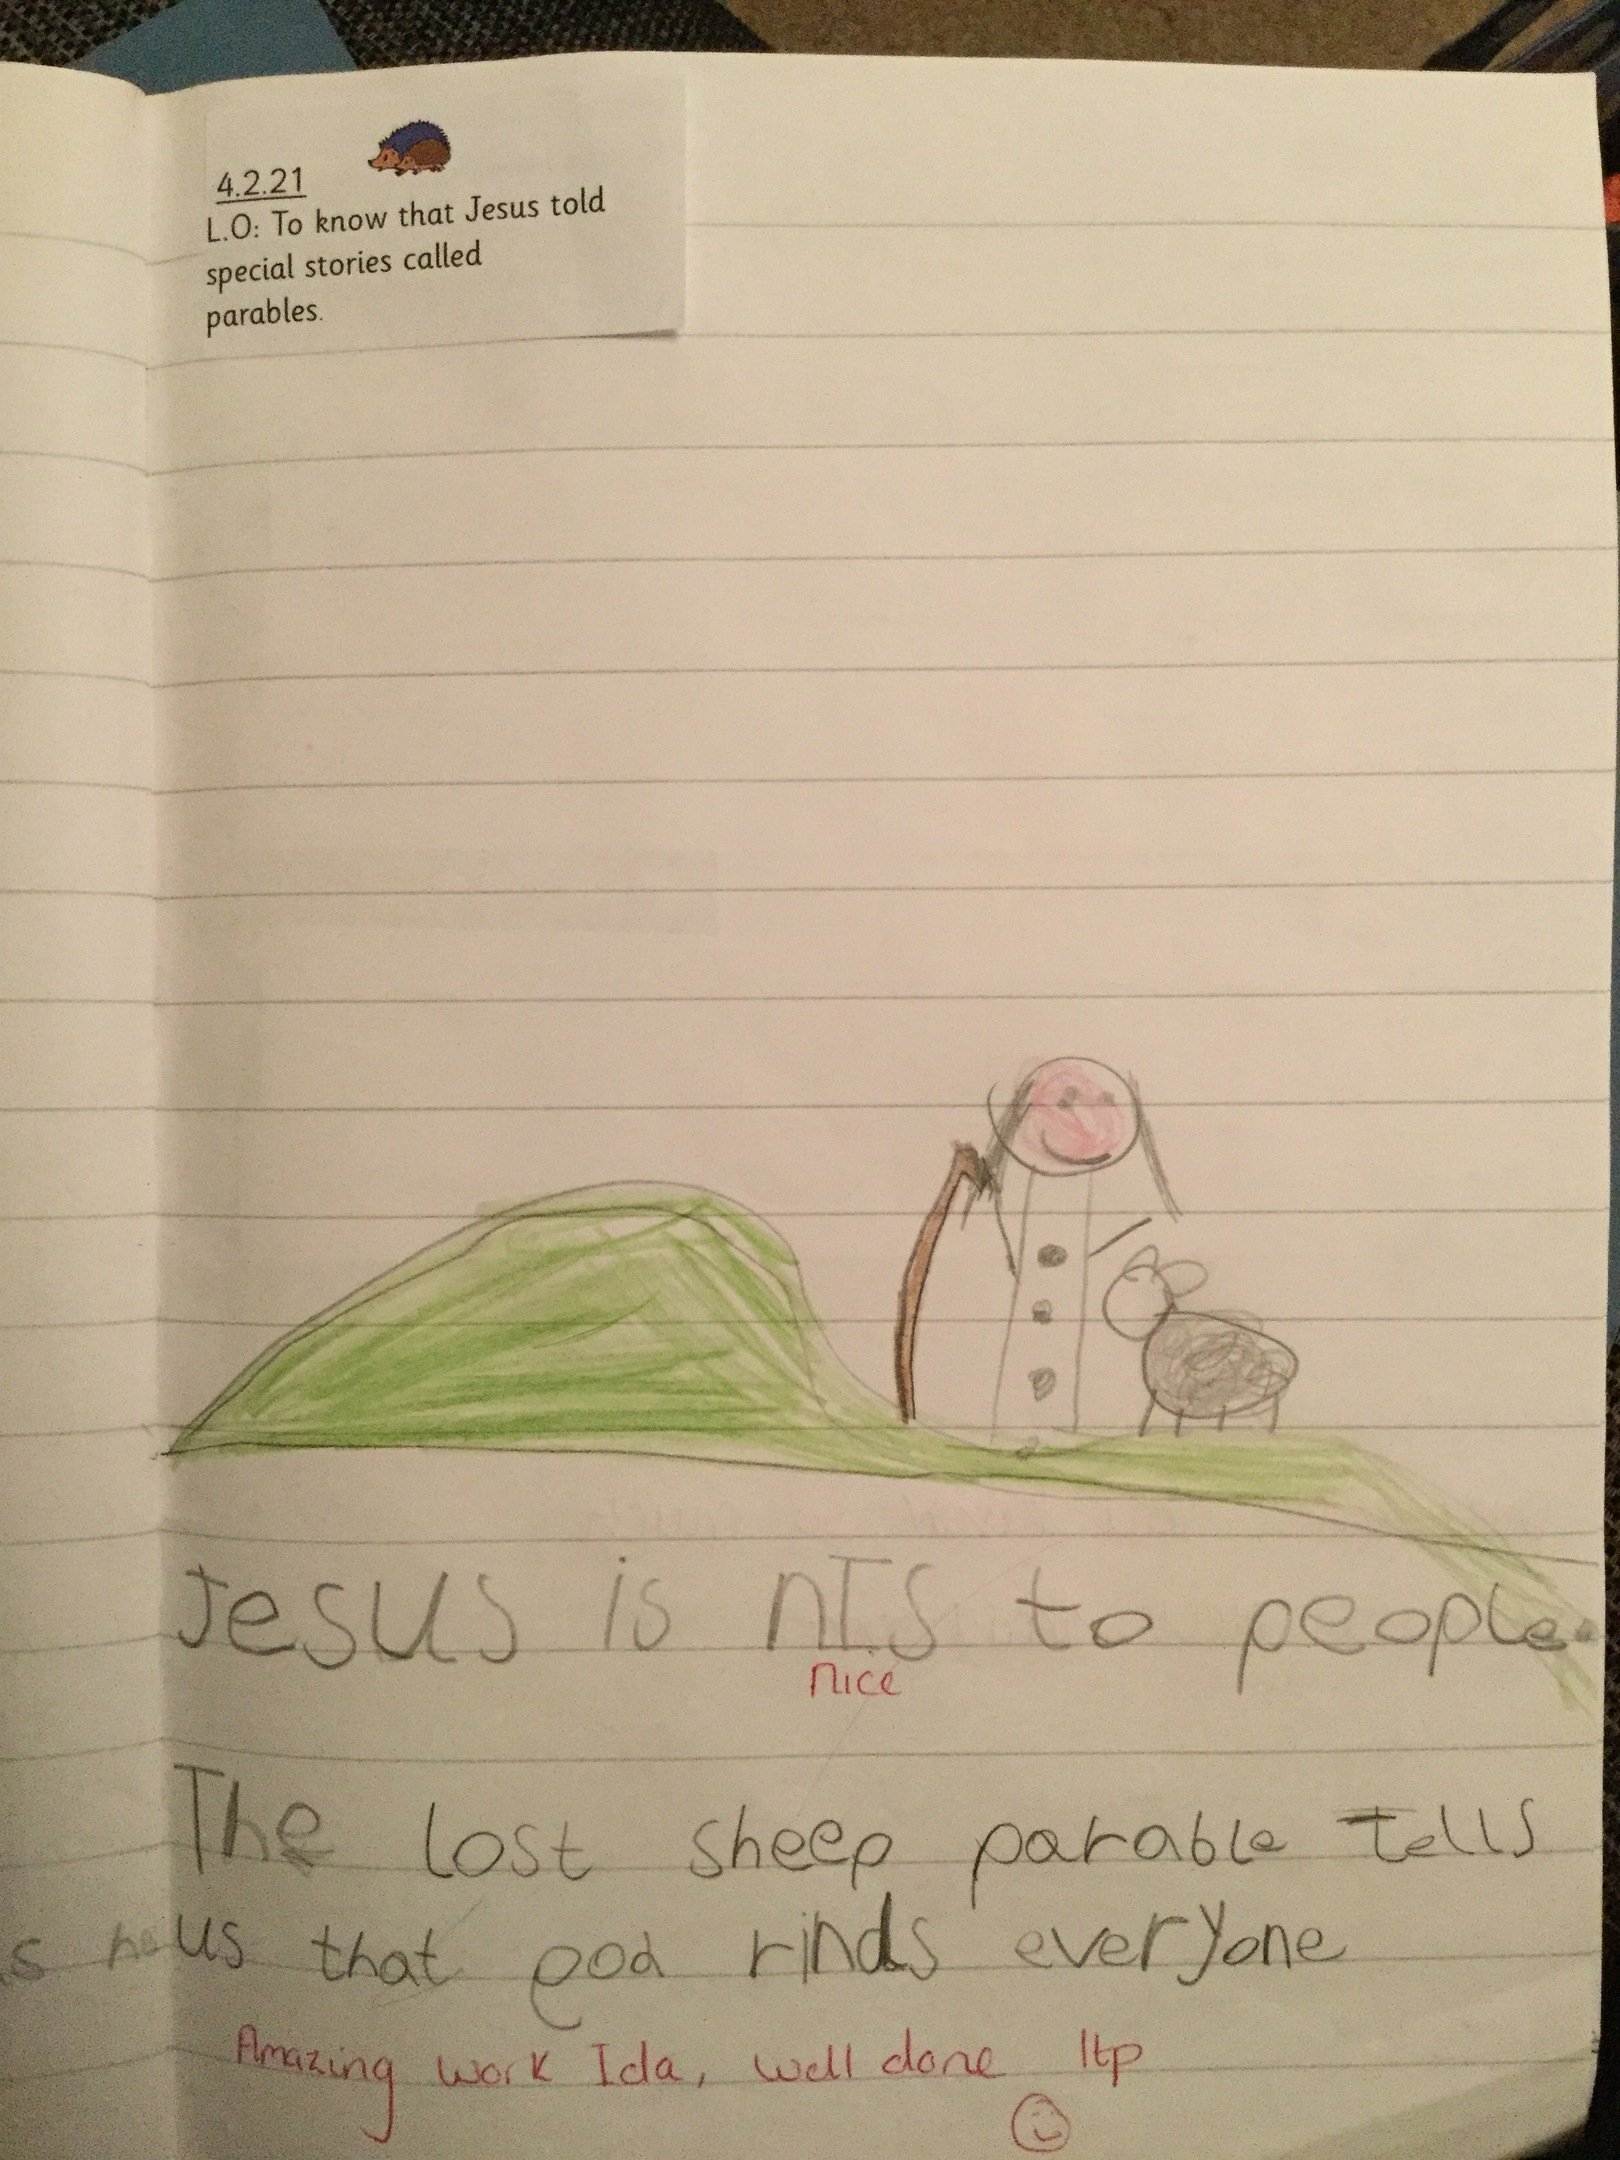 4.2.21
L.O: To know that Jesus told
special stories called
parables.
Jesus is nIs to people.
nice
The lost sheep parable tells
us that god rinds everyone
Amazing work Ida, well done 1tp